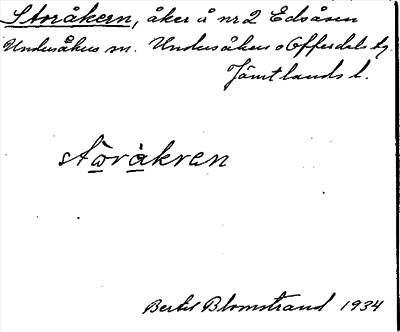 Storåkern, åker å nr 2 Edsåsen
Undersåkers sn. Undersåkers o Offerdals tg
Jämtlands l.
stōràkren
Bertil Blomstrand 1934